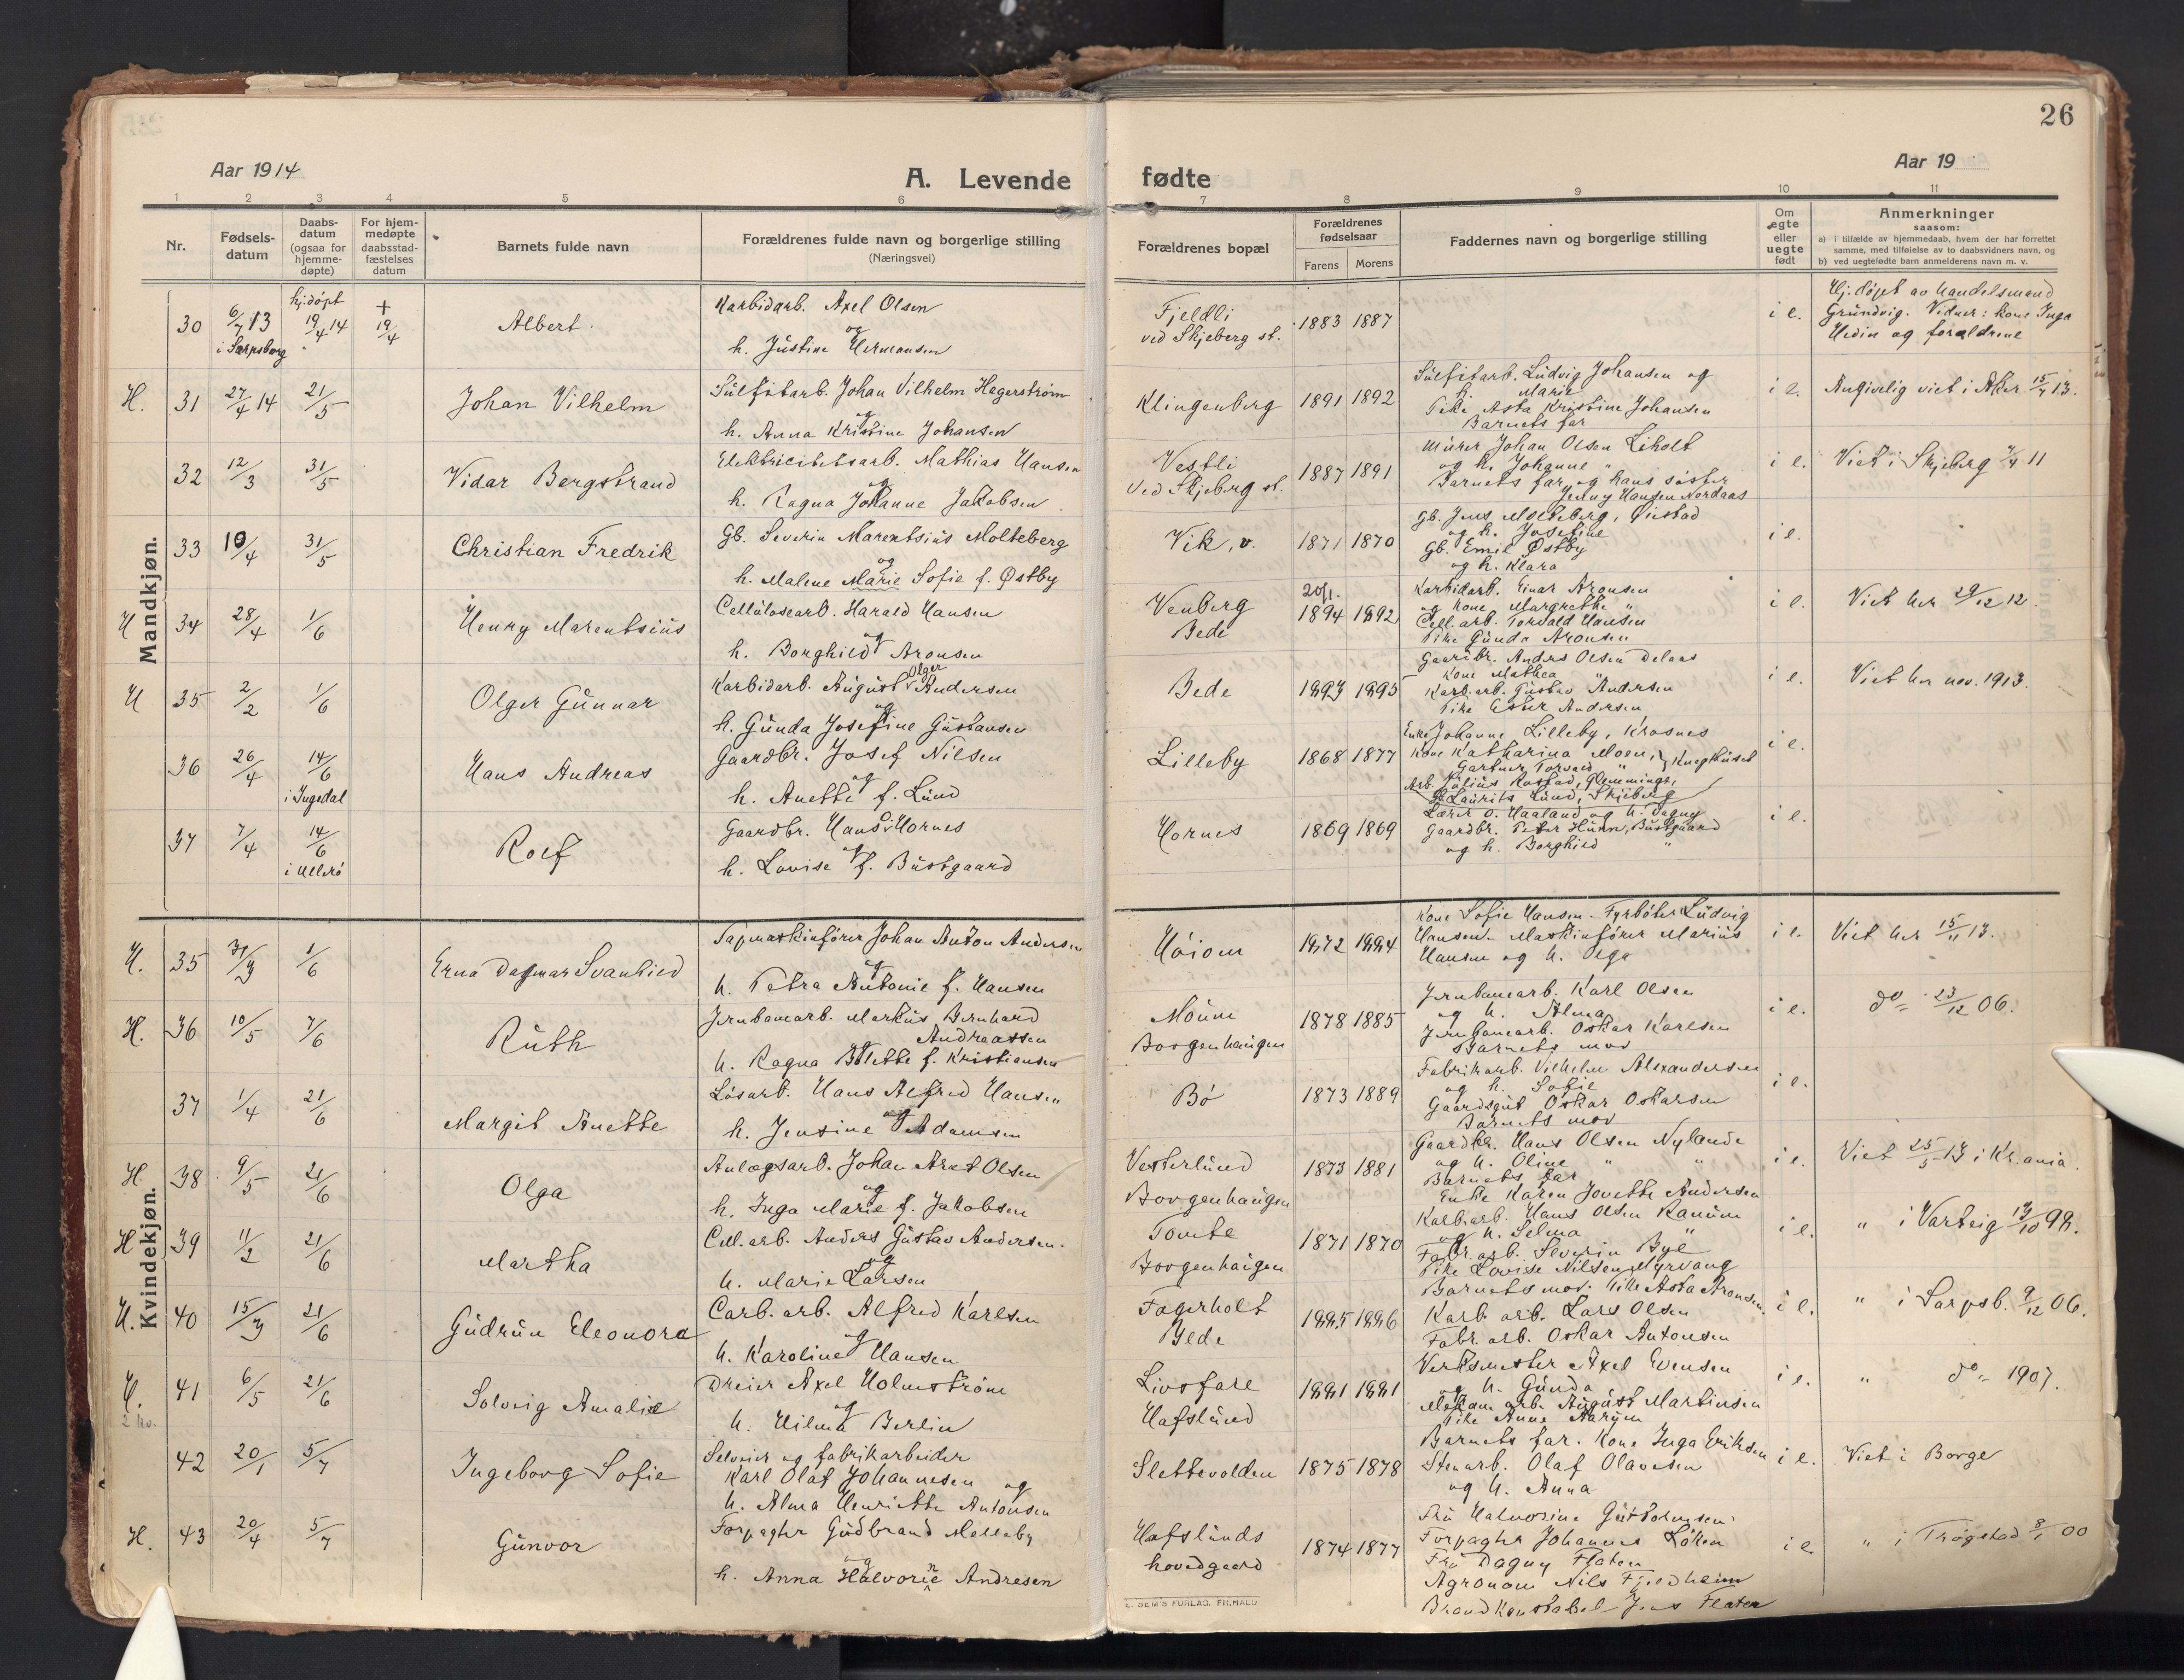 26
Aar 1914
A. Levende
fødte
Aar 19
1 2 3 4 5 6 7 8 9 10 11
Nr.
Fødsels-
datum
Daabs-
datum
(ogsaa for
hjemme-
døpte)
For hjem-
medøpte
daabsstad-
fæstelses
datum
Barnets fulde navn
Forældrenes fulde navn og borgerlige stilling
(Næringsvei)
Forældrenes bopæl
Forældrenes
fødselsaar
Farens Morens
Faddernes navn og borgerlige stilling
Om
egte
eller
uegte
født
Anmerkninger
saasom:
a) i tilfælde av hjemmedaab, hvem der har forrettet
samme, med tilføielse av to daabsvidners navn, og
b) ved uegtefødte barn anmelderens navn m. v.
Mandkjøn.
30
6/7 13
i Sarpsborg
hj.døpt
19/4 14
+
19/4
Albert.
Karbidarb. Axel Olsen
og
h. Justine Hermansen
Fjeldli
ved Skjeberg st.
1883 1887
i e.
Hj. døpt av Handelsmand
Grundvig. Vidner: kone Inga
Hedin og forældrene
H. 31 27/4 14 21/5
Johan Vilhelm
Sulfitarb. Johan Vilhelm Hegerstrøm
og
h. Anna Kristine Johansen
Klingenberg
1891 1892
Sulfitarb. Ludvig Johansen og
h. Marie
Pike Asta Kristine Johansen
Barnets far
i e.
Angivelig viet i Aker 15/7 13.
32 12/3 31/5
Vidar Bergstrand
Elektricitetsarb. Mathias Hansen
og
h. Ragna Johanne Jakobsen
Vestli
ved Skjeberg st.
1887 1891
Murer Johan Olsen Liholt
og h. Johanne "
Barnets far og hans søster
Jenny Hansen Nordaas
i e.
Viet i Skjeberg 11
33 10/4 31/5
Christian Fredrik
Gb. Severin Marentsius Molteberg
og
h. Malene Marie Sofie f. Østby
Vik, v.
1871 1870
Gb. Jens Molteberg, Opstad
og h. Josefine
Gb. Emil Østby
og h. Klara
i e.
H 34 28/4 1/6
Henry Marentsius
Cellulosearb. Harald Hansen
og
h. Borghild Aronsen
Venberg
Bede
20/1.
1894 1892
Karbidarb. Einar Aronsen
og kone Margrethe "
Cell. arb. Torvald Hansen
Pike Gunda Aronsen
i e.
Viet her 29/12 12.
H 35 2/2 1/6
Olger Gunnar
Karbidarb. August Olger Andersen
og
h. Gunda Josefine Gustavsen
Bede
1893 1895
Gaardbr. Anders Olsen Delaas
Kone Mathea "
Karb. arb. Gustav Andersen
Pike Ester Andersen
i e.
Viet her nov. 1913.
36 26/4 14/6
i Ingedal
Hans Andreas
Gaardbr. Josef Nilsen
og
h. Anette f. Lund
Lilleby
1868 1877
Enke Johanne Lilleby, Krosnes
Kone Katharina Moen,
Gartner Torvald "
Arb. Julius Rostad, Glemminge,
Gb. Laurits Lund, Skjeberg
i e.
37 7/4 14/6
i Ullerø
Rolf
Gaardbr. Hans Hornes
og
h. Lovise f. Bustgaard
Hornes
1869 1869
Lærer O. Haaland og h. Dagny
Gaardbr. Peter Hunn, Bustgaard
og h. Borghild "
i e.
Kvindekjøn.
H. 35 31/3 1/6
Erna Dagmar Svanhild
Tapmaskinfører Johan Anton Andersen
og
h. Petra Antonie f. Hansen
Høiom
1872 1884
Kone Sofie Hansen. Fyrbøter Ludvig
Hansen. Maskinfører Marius
Hansen og h. Olga
i e.
Viet her 15/11 13.
H. 36 10/5 7/6
Ruth
Jernbanearb. Markus Bernhard
Andreassen
og
h. Ragna Bolette f. Kristiansen
Moum
Borgenhaugen
1878 1885
Jernbanearb. Karl Olsen
og h. Alma
Jernbanearb. Oskar Karlsen
Barnets mor
i e.
do 23/12 06.
37 1/4 21/6
Margit Anette
Løsarb. Hans Alfred Hansen
og
h. Jensine Adamsen
Bø
1873 1889
Fabrikarb. Vilhelm Alexandersen
og h. Sofie
Gaardsgut Oskar Oskarsen
Barnets mor
i e.
H. 38 9/5 21/6
Olga
Anlægsarb. Johan Aret Olsen
og
h. Inga Marie f. Jakobsen
Vesterlund
Borgenhaugen
1873 1881
Gaardbr. Hans Olsen Nylande
og h. Oline " "
Barnets far
Enke Karen Jonette Andersen
i e.
Viet 25/5 13 i Kr.ania.
H 39 11/2 21/6
Martha
Cell. arb. Anders Gustav Andersen.
og
h. Marie Larsen
Tomte
Borgenhaugen
1871 1870
Karb.arb. Hans Olsen Ranum
og h. Selma "
Fabr. arb. Severin Bye
Pike Lovise Nilsen Myrvang
i e.
" i Varteig 13/10 98.
H. 40 15/3 21/6
Gudrun Eleonora
Carb. arb. Alfred Karlsen
og
h. Karoline Hansen
Fagerholt
Bede
1885 1886
Barnets mor. Pike Asta Aronsen.
Karb. arb. Lars Olsen
Fabr. arb. Oskar Antonsen
i e.
" i Sarpsb. 9/12 06.
H. 41 6/5 21/6
Solveig Amalie
Dreier Axel Holmstrøm
og
h. Hilma Berlin
Livsfare
Hafslund
1881 1881
Verksmester Axel Evensen
og h. Gunda
Mekan. arb. August Martinsen
Pike Anna Aarum
i e.
" do 1907.
42 20/1 5/7
Ingeborg Sofie
Selveier og fabrikarbeider
Karl Olaf Johannesen og
h. Alma Henriette Antonsen
Slettevolden
1875 1878
Barnets far. Kone Inga Eriksen
Stenarb. Olaf Olavesen
og h. Anna
i e.
Viet i Borge
H. 43 20/4 5/7
Gunvor
Forpagter Gudbrand Melleby
og
h. Anna Halvorine Andresen
Hafslunds
hovedgaard
1874 1877
Fru Halvorine Guttormsen.
Forpagter Johannes Løken
Fru Dagny Flaten
Agronom Nils Fjeldheim
Brandkonstabel Jens Flaten
i e
" i Trøgstad 8/1 00
E. SEM'S FORLAG, FR.HALD